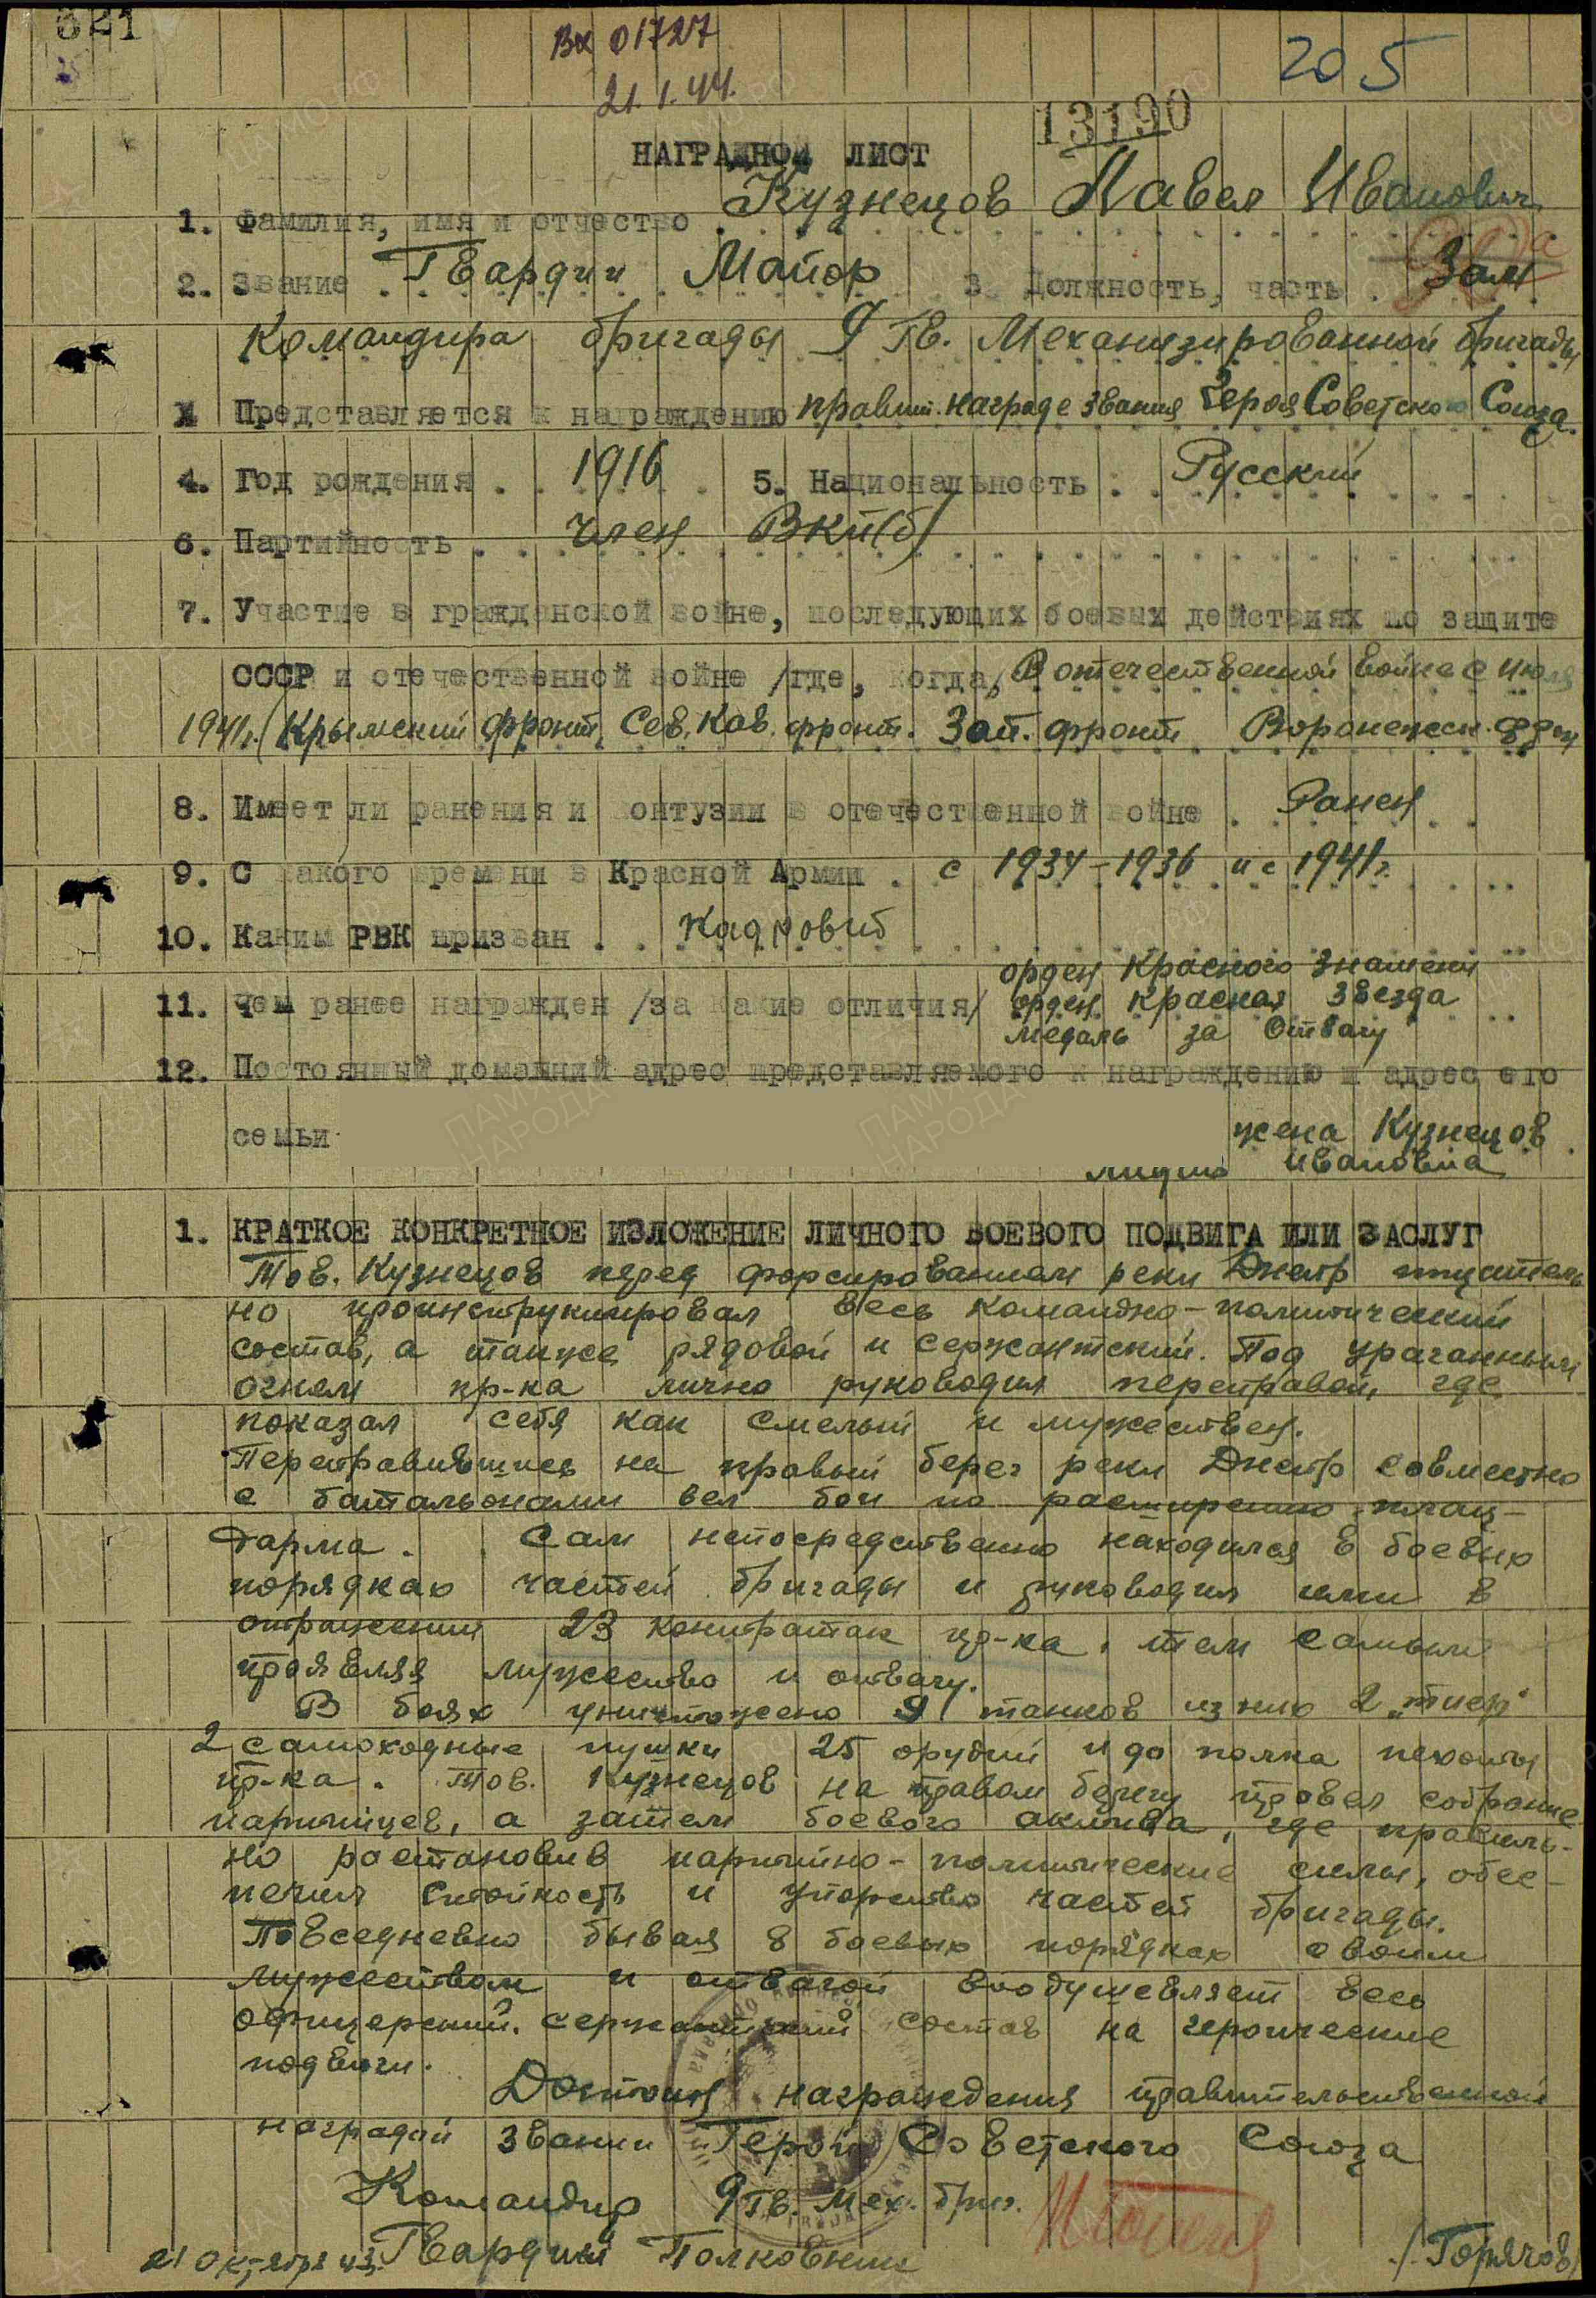 321
Вх 01727
21.1.44.
205
13190
НАГРАДНОЙ ЛИСТ
1. Фамилия, имя и отчество . Кузнецов Павел Иванович
2. Звание . Гвардии Майор 3. Должность, часть . Зам
Командира бригады 9 Гв. Механизированной бригады
Представляется к награждению правит. награде звания Героя Советского Союза.
4. Год рождения . . 1916 5. Национальность . . Русский
6. Партийность . . член ВКП(б)
7. Участие в гражданской войне, последующих боевых действиях по защите
СССР и отечественной войне /где, когда/ В отечественной войне с июля
1941г. (Крымский фронт, Сев. Кав. фронт. Зап. фронт Воронежск.
8. Имеет ли ранения и контузии в отечественной войне . Ранен
9. С какого времени в Красной Армии . с 1934-1936 и с 1941г.
10. Каким РВК призван . . Кадровый
орден Красного Знамени
11. Чем ранее награжден /за какие отличия/ орден Красная Звезда
медаль за Отвагу
12. Постоянный домашний адрес представляемого к награждению и адрес его
семьи жена Кузнецов
Ивановна
1. КРАТКОЕ КОНКРЕТНОЕ ИЗЛОЖЕНИЕ ЛИЧНОГО БОЕВОГО ПОДВИГА ИЛИ ЗАСЛУГ
Тов. Кузнецов перед форсированием реки Днепр тщатель
но проинструктировал весь командно-политический
состав, а также рядовой и сержантский. Под ураганным
огнем пр-ка лично руководил переправой, где
показал себя как смелый и мужествен.
Переправившись на правый берег реки Днепр совместно
с батальонами вел бои по расширению плац-
дарма. Сам непосредственно находился в боевых
порядках частей бригады и руководил ими в
отражении 23 контратак пр-ка, тем самым
проявляя мужество и отвагу.
В боях уничтожено 9 танков из них 2 „тигр"
2 самоходные пушки 25 орудий и до полка пехоты
пр-ка. Тов. Кузнецов на правом берегу провел собрание
партийцев, а затем боевого актива, где правиль-
но расстановив партийно-политические силы, обес-
печил стойкость и упорство частей бригады.
Повседневно бывая в боевых порядках своим
мужеством и отвагой воодушевляет весь
офицерский, сержантский состав на героические
подвиги.
Достоин награждения правительственной
наградой звании Герой Советского Союза
Командир 9 Гв. Мех. бриг.
21 Октября 43. Гвардии Полковник /Горячев/